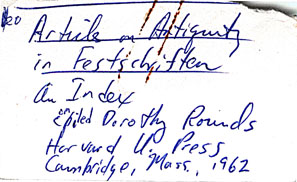 Article on Antiquity
in Festschriften
An Index
Compiled Dorothy Rounds
Harvard U. Press
Cambridge, Mass., 1962